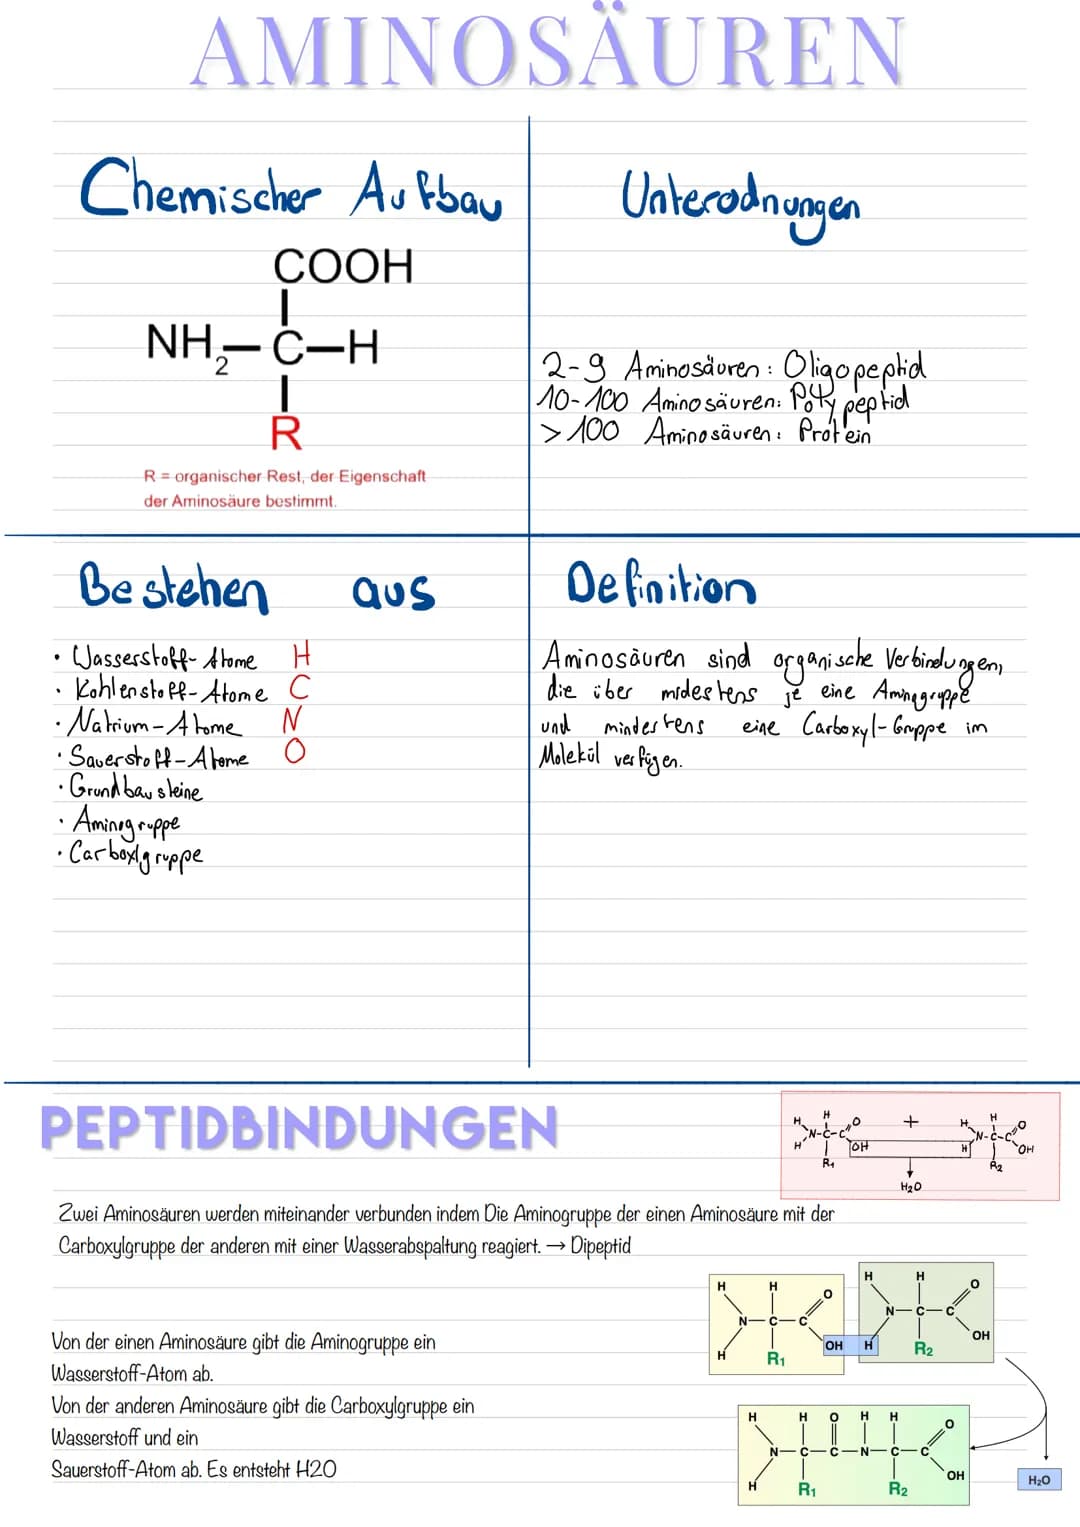 AMINOSÄUREN
Chemischer Aufbau
COOH
NH2–C–H
R
R = organischer Rest, der Eigenschaft
der Aminosäure bestimmt.
Unterodnungen
2-9 Aminosäuren: Oligopeptid
10-100 Aminosäuren: Polypeptid
>100 Aminosäuren: Protein
Bestehen aus
• Wasserstoff-Atome H
• Kohlenstoff-Atome C
• Natrium-Atome N
• Sauerstoff-Atome O
• Grundbausteine
• Aminogruppe
• Carboxlgruppe
Definition
Aminosäuren sind organische Verbindungen,
die über midestens je eine Aminogruppe
und mindestens eine Carboxyl-Gruppe im
Molekül verfügen.
PEPTIDBINDUNGEN
H H O + H H O
N-C-C N-C-C
H OH H OH
R1 R2
H2O
Zwei Aminosäuren werden miteinander verbunden indem Die Aminogruppe der einen Aminosäure mit der
Carboxylgruppe der anderen mit einer Wasserabspaltung reagiert. → Dipeptid
Von der einen Aminosäure gibt die Aminogruppe ein
Wasserstoff-Atom ab.
Von der anderen Aminosäure gibt die Carboxylgruppe ein
Wasserstoff und ein
Sauerstoff-Atom ab. Es entsteht H2O
H H O
N C C
H R1 OH
H H O
N C C
H R2 OH
H H O H H O
N C C N C C
H R1 R2 OH
H2O